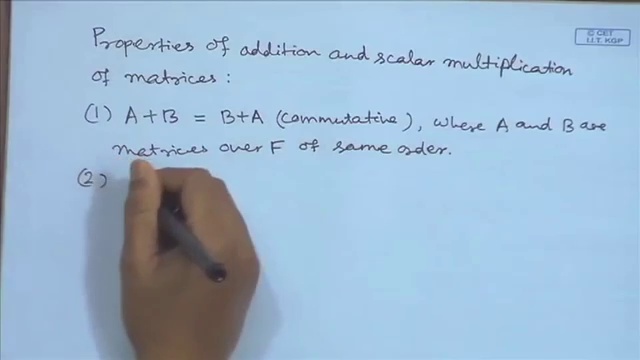 © CET
I.I.T. KGP
Properties of addition and scalar multiplication
of matrices :
(1) A+B = B+A (commutative), where A and B are
matrices over F of same order.
(2)